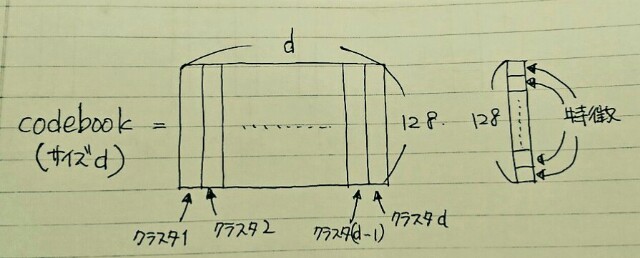 d
codebook =
(サイズd)
128
128
特徴
クラスタ1
クラスタ2
クラスタ(d-1)
クラスタd